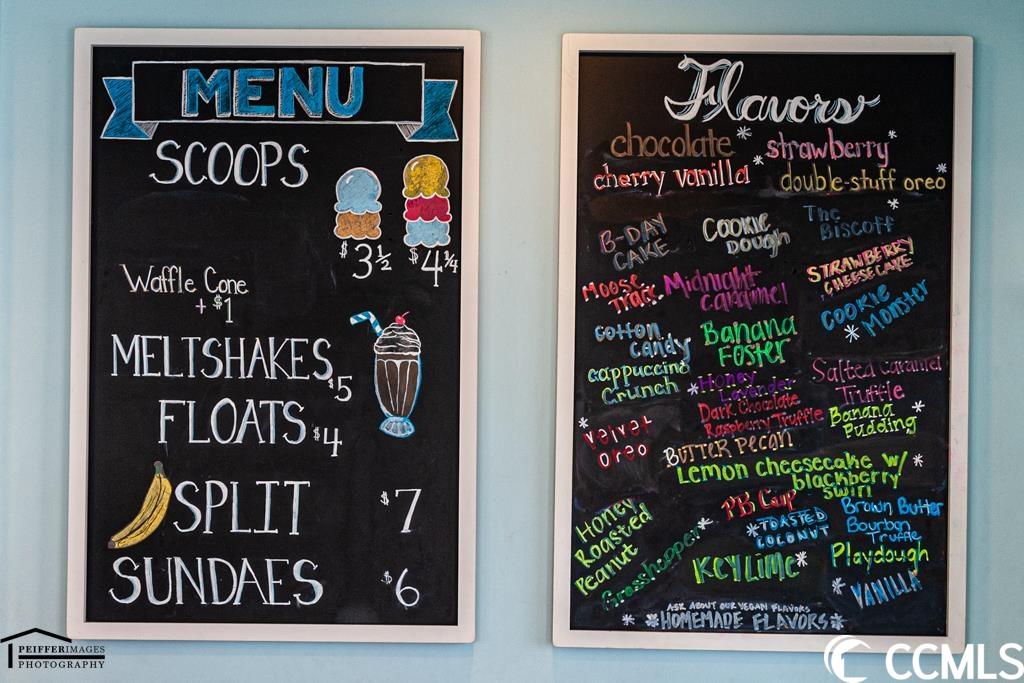 MENU
SCOOPS
$3 1/2
$4 1/4
Waffle Cone
+ $1
MELTSHAKES $5
FLOATS $4
SPLIT $7
SUNDAES $6
Flavors
chocolate * strawberry *
cherry vanilla * double-stuff oreo *
*
B-DAY
CAKE
COOKIE
DOUGH
The
Biscoff
Moose
Trax
Midnight
caramel
STRAWBERRY
CHEESECAKE
COOKIE
* MONSTER
Cotton
Candy
Banana
FOSTER
cappuccino
Crunch
* Honey
Lavender
Salted Caramel
Truffle
Dark Chocolate
Raspberry Truffle
Banana *
Pudding
* Velvet
Oreo
BUTTER PECAN
Lemon cheesecake w/ *
blackberry
swirl
PB CUP
Honey
Roasted
Peanut
Grasshopper *
* TOASTED
COCONUT
Brown Butter
Bourbon
Truffle
KEY LIME *
Playdough
* VANILLA
ASK ABOUT OUR VEGAN FLAVORS
* *HOMEMADE FLAVORS* *
PEIFFERIMAGES
PHOTOGRAPHY
CCMLS